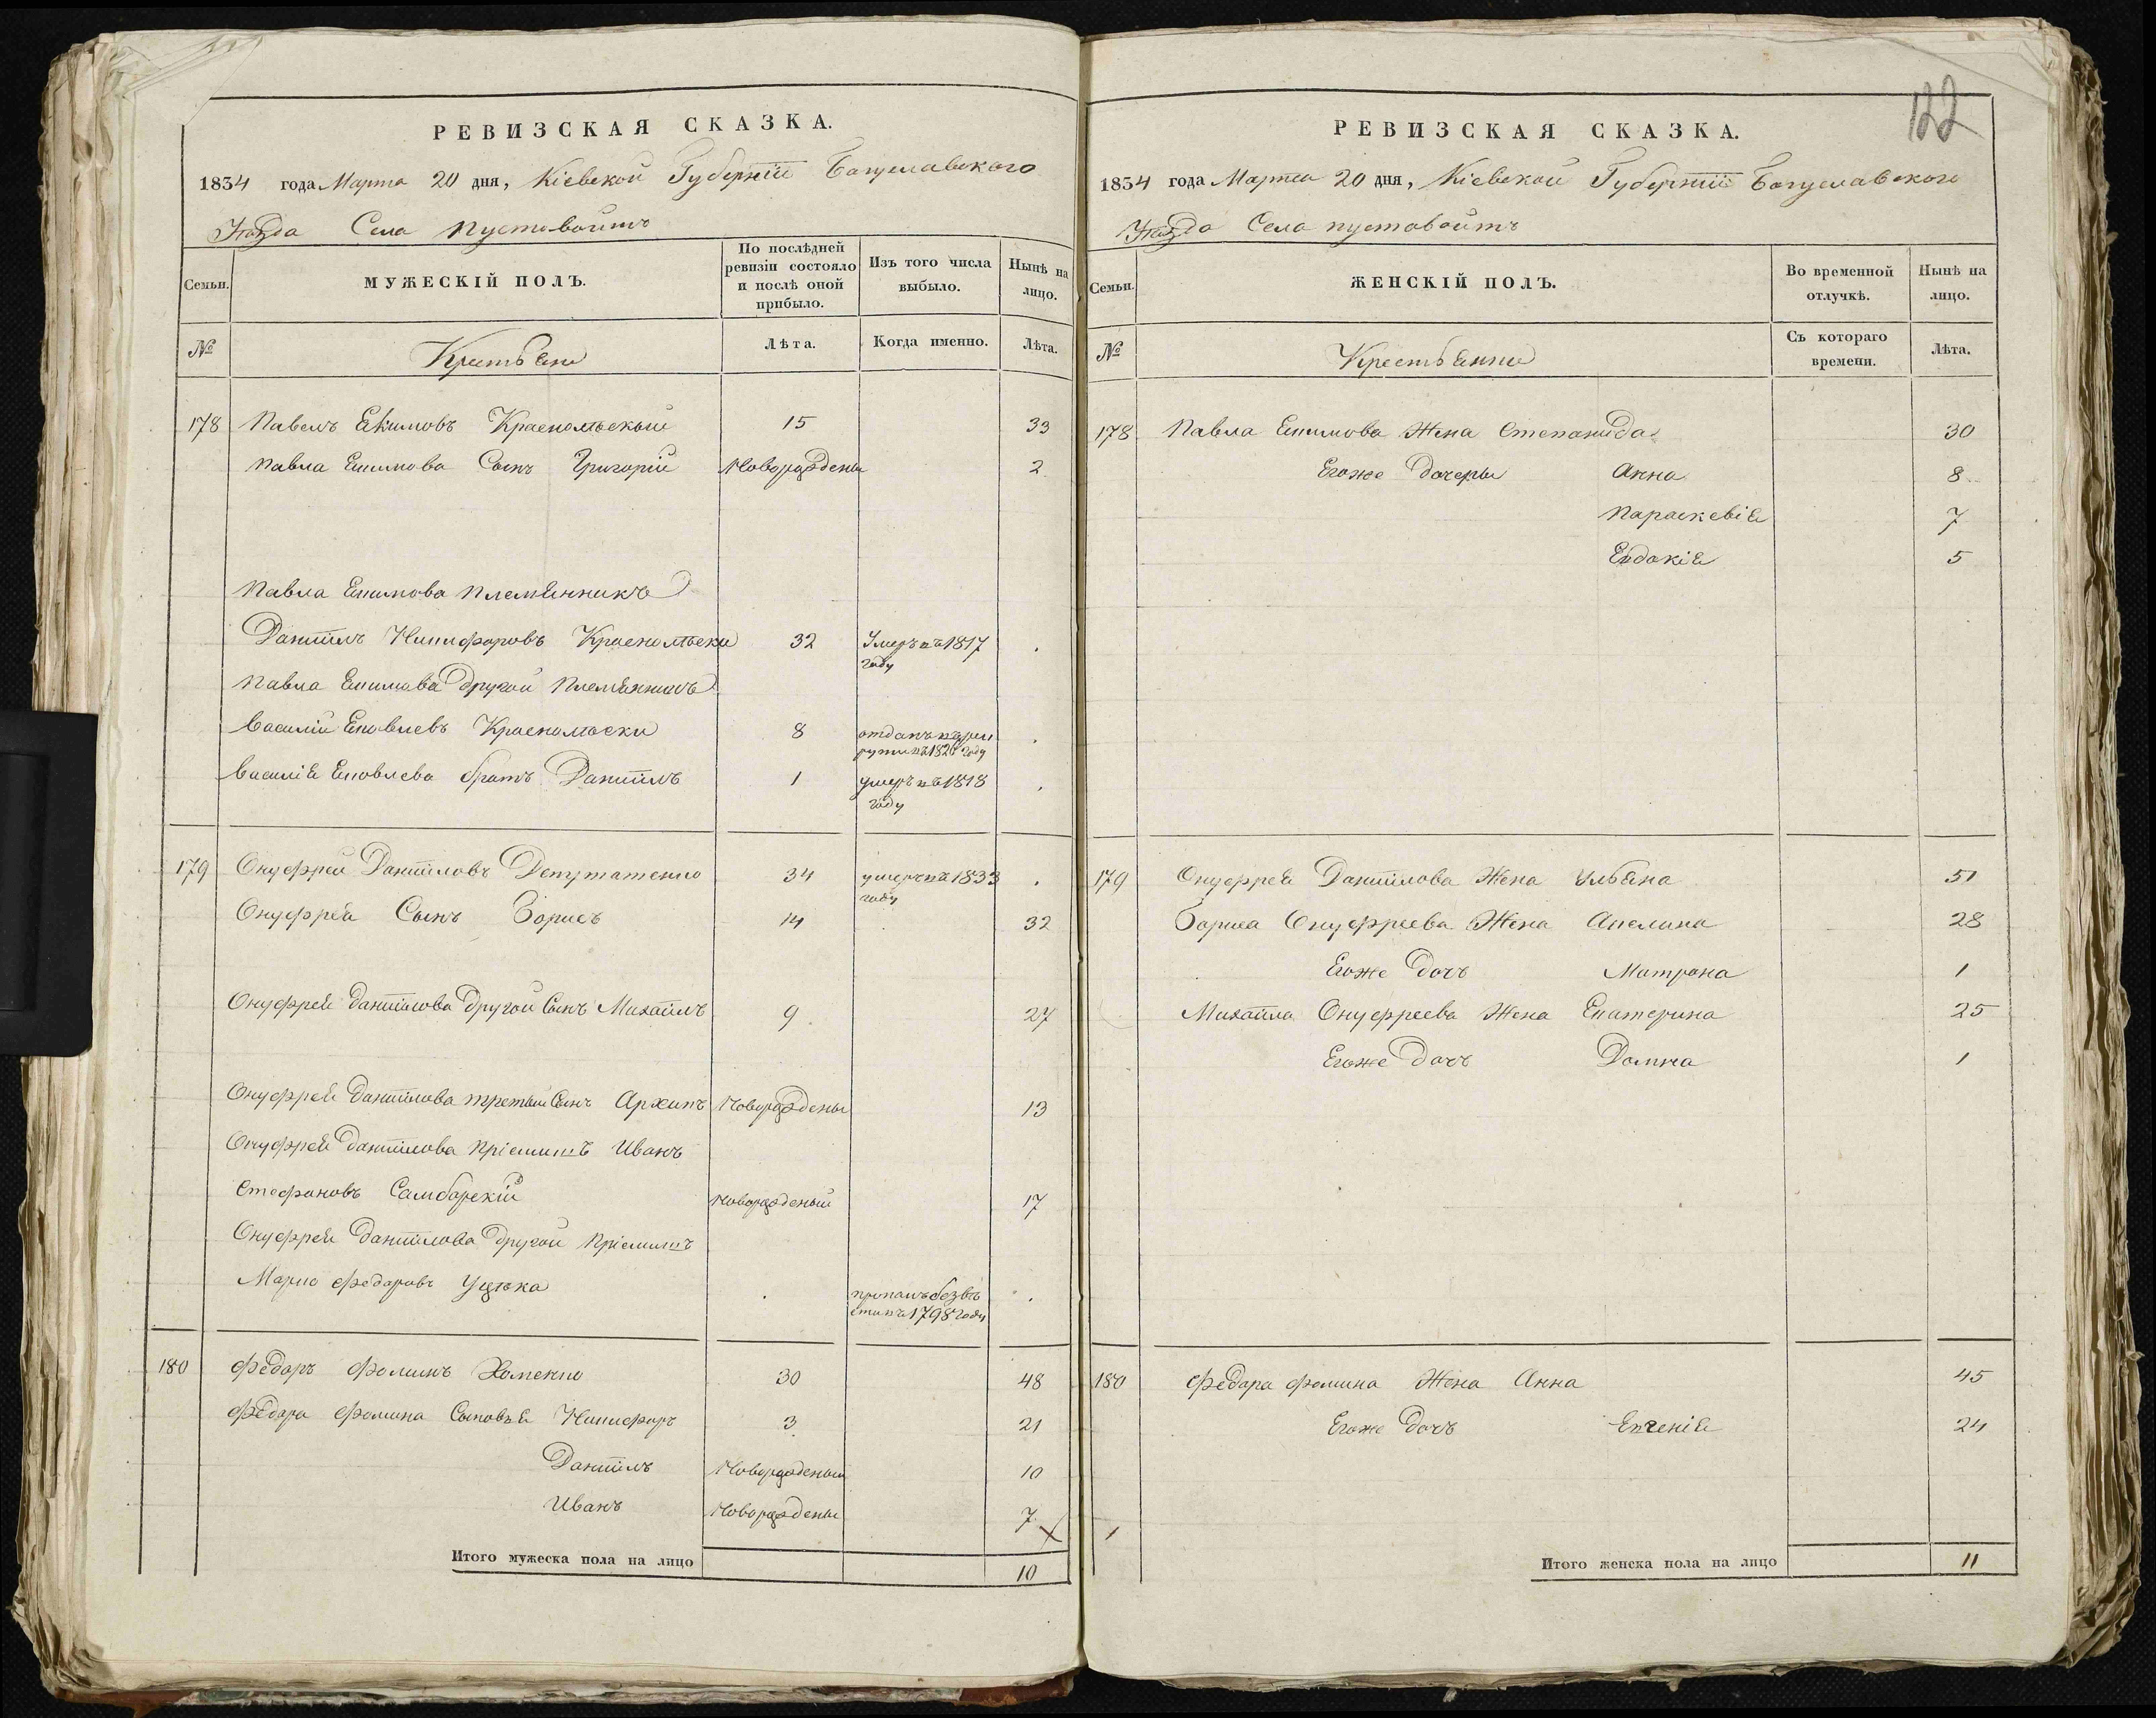 РЕВИЗСКАЯ СКАЗКА.
1834 года Марта 20 дня, Кіевской Губерніи Богуславского
Уѣзда Села Пустовойтъ
Семьи.
МУЖЕСКІЙ ПОЛЪ.
По послѣдней ревизіи состояло и послѣ оной прибыло.
Изъ того числа выбыло.
Нынѣ на лицо.
№
Крестьяне
Лѣта.
Когда именно.
Лѣта.
178 Павелъ Екимовъ Краснолѣский 15 33
Павла Екимова Сынъ Григорій Новорожденый 2
Павла Екимова племянникъ
Даниилъ Никифоровъ Краснолѣски 32 Умеръ въ 1817 году .
Павла Екимова другой племянникъ
Василій Яковлевъ Краснолѣски 8 отданъ въ рекруты въ году .
Василія Яковлева братъ Даниилъ 1 умеръ въ 1818 году .
179 Онуфрей Данииловъ Депутатенко 34 умеръ въ 1833 году .
Онуфрея Сынъ Борисъ 14 32
Онуфрея Даниилова другой Сынъ Михаилъ 9 27
Онуфрея Даниилова третый Сынъ Архипъ Новорожденый 13
Онуфрея Даниилова пріемышъ Иванъ
Стефановъ Самборскій Новорожденый 17
Онуфрея Даниилова другой пріемышъ
Марко Федоровъ . пропалъ безвѣсти въ 1798 году .
180 Федоръ Фоминъ Хоменко 30 48
Федора Фомина Сыновья Никифоръ 3 21
Даниилъ Новорожденый 10
Иванъ Новорожденый 7
Итого мужеска пола на лицо 10
122
РЕВИЗСКАЯ СКАЗКА.
1834 года Марта 20 дня, Кіевской Губерніи Богуславского
Уѣзда Села пустовойтъ
Семьи.
ЖЕНСКІЙ ПОЛЪ.
Во временной отлучкѣ.
Нынѣ на лицо.
№
Крестьянки
Съ котораго времени.
Лѣта.
178 Павла Екимова Жена Степанида 30
Егоже дочеры Анна 8
Параскевія 7
Евдокія 5
179 Онуфрея Даниилова Жена Ульяна 51
Бориса Онуфреева Жена Акелина 28
Егоже Дочъ Матрона 1
Михаила Онуфреева Жена Екатерина 25
Егоже Дочъ Домна 1
180 Федора Фомина Жена Анна 45
Егоже Дочъ Евгенія 24
Итого женска пола на лицо 11